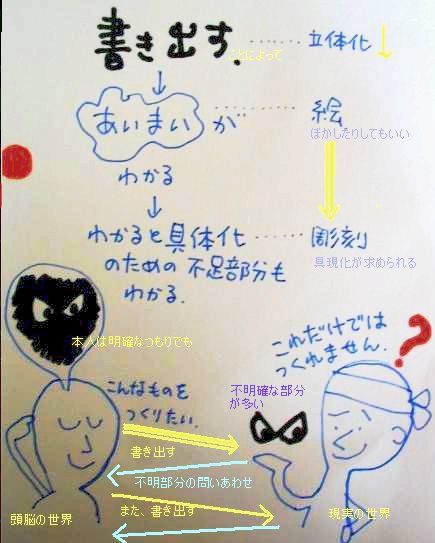 書き出す.
ことによって
立体化
あいまい が
絵
ぼかしたりしてもいい
わかる
わかると具体化
のための不足部分も
わかる.
彫刻
具現化が求められる
本人は明確なつもりでも
これだけでは
つくれません.
?
こんなものを
つくりたい.
不明確な部分
が多い
書き出す
不明部分の問いあわせ
また、書き出す
頭脳の世界
現実の世界